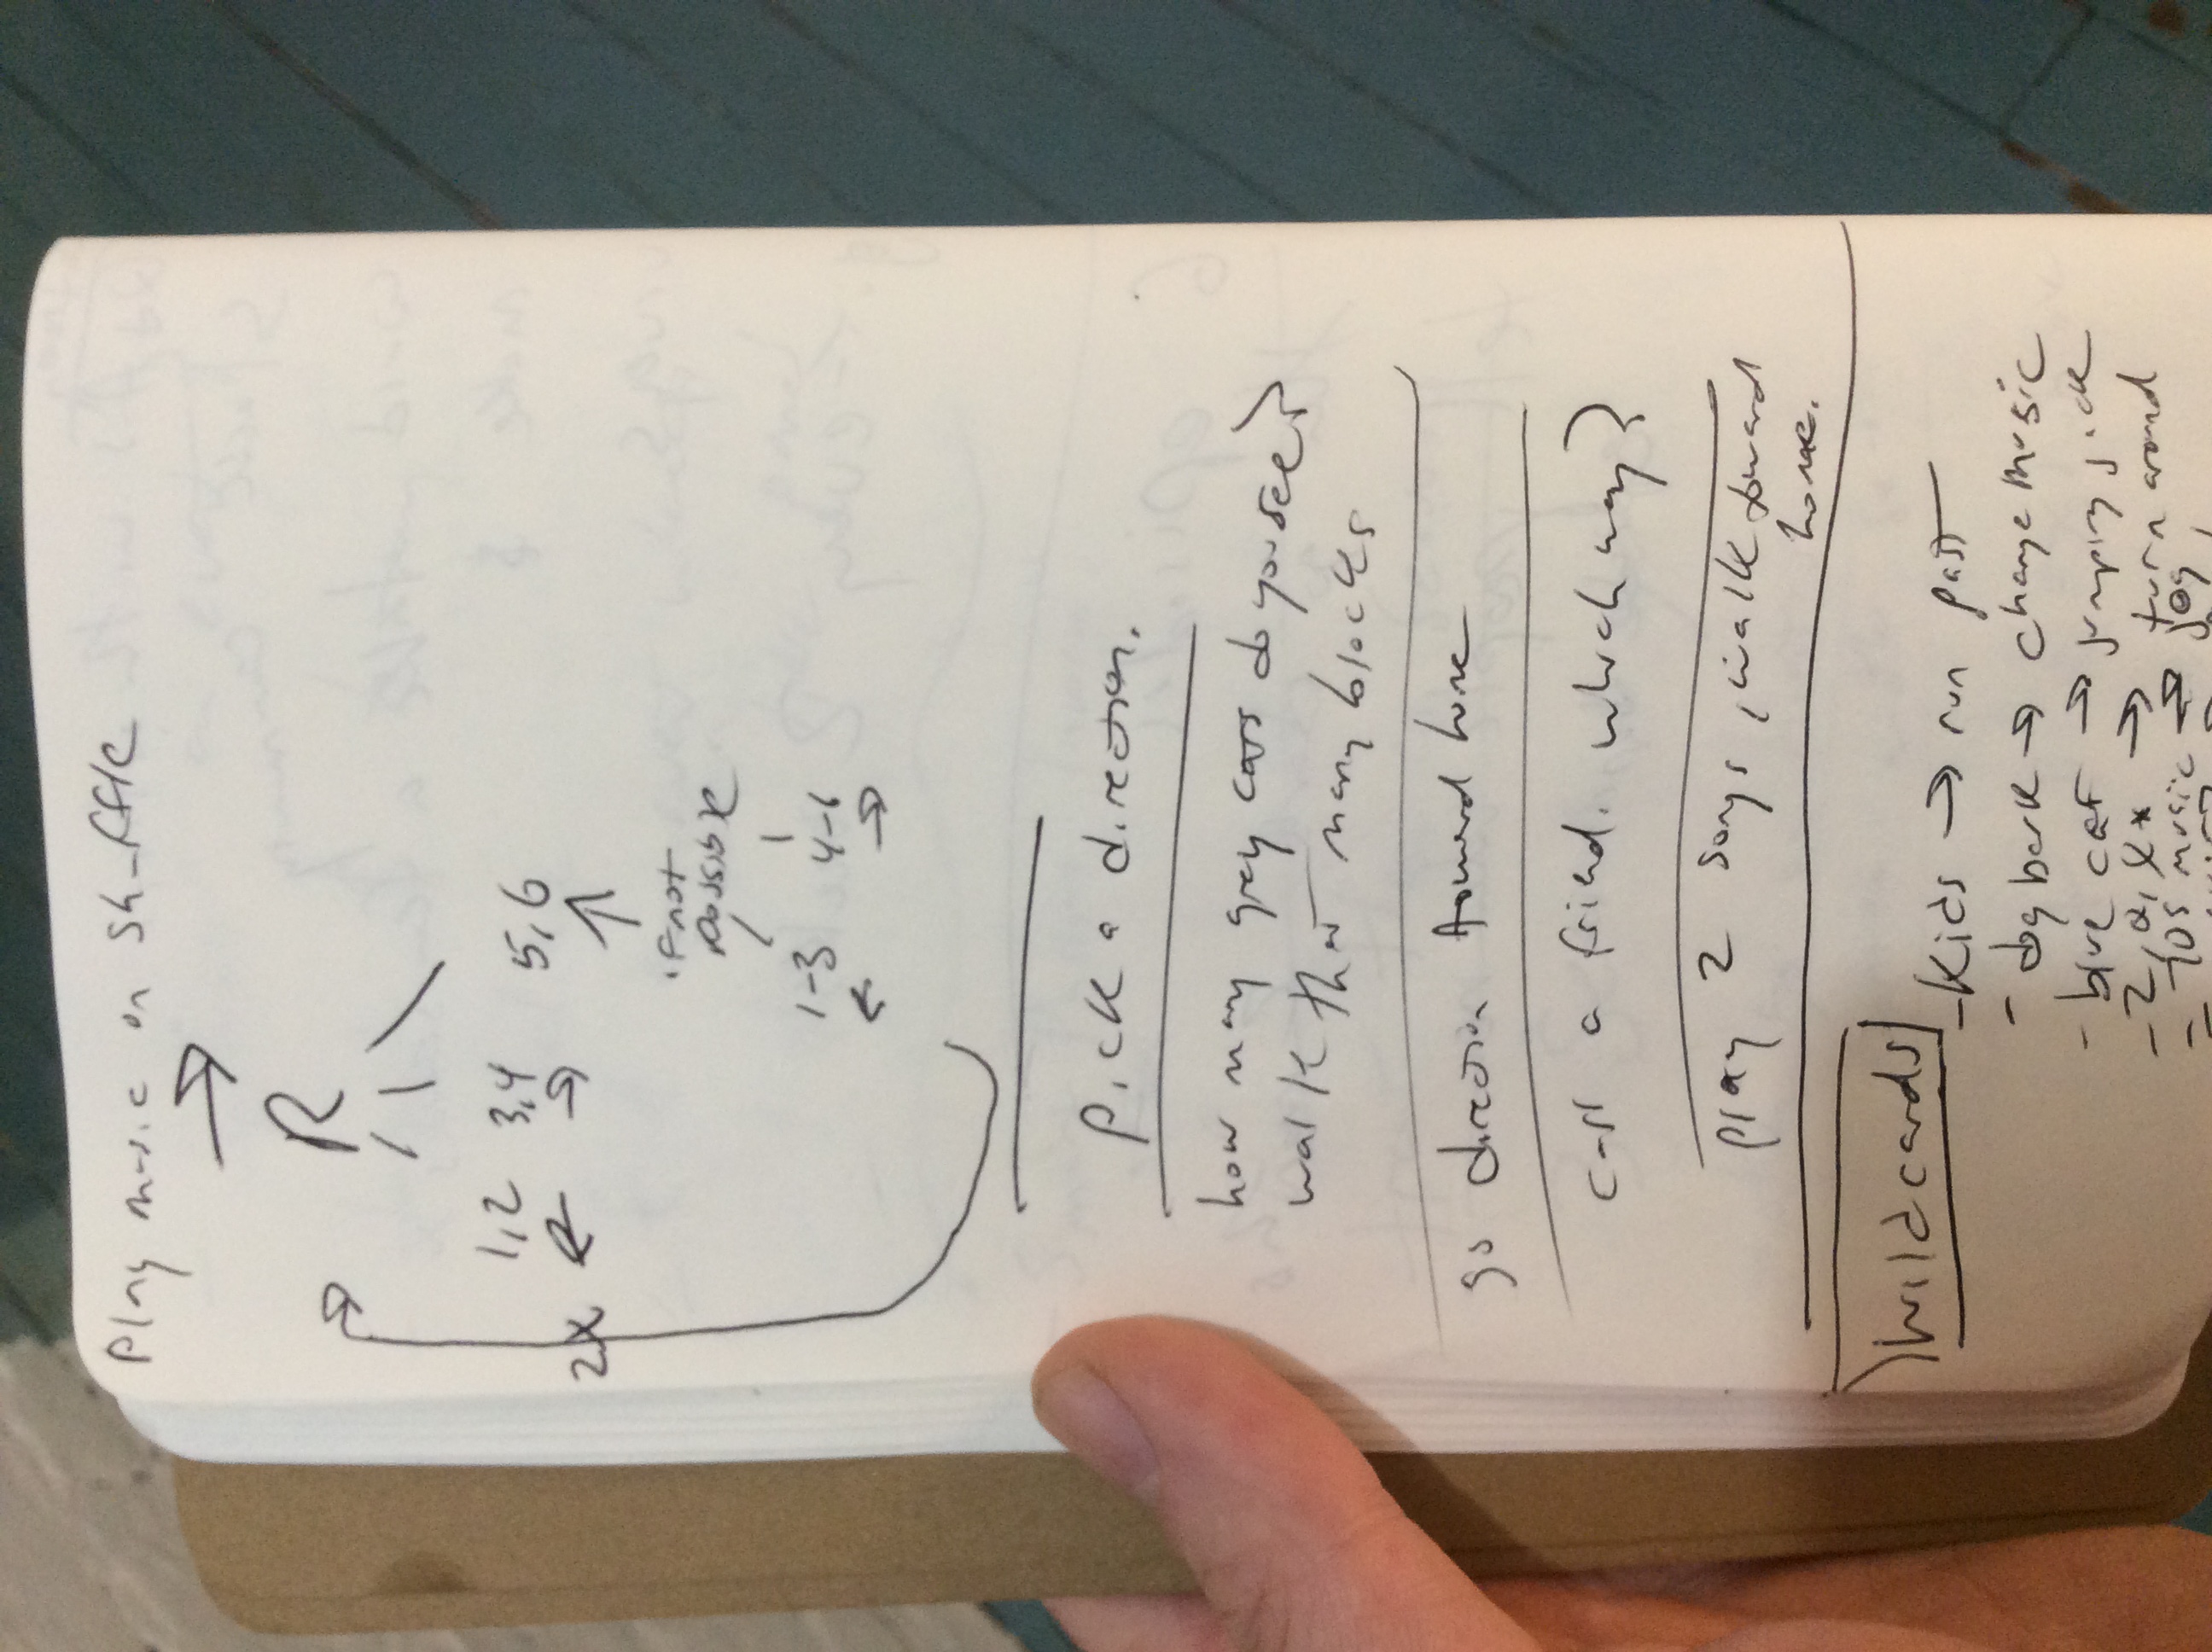 Play music on shuffle
→
R
1,2 3,4 5,6
2x ← → ↑
if not
possible
1-3 4-6
← →
pick a direction.
how many grey cars do you see?
walk that many blocks
go direction toward home
call a friend. which way?
play 2 songs, walk toward
home.
Wildcards
- Kids → run past
- dog bark → change music
- blue car → jumping jack
- Z, Q, X * → turn around
- 70s music → jog